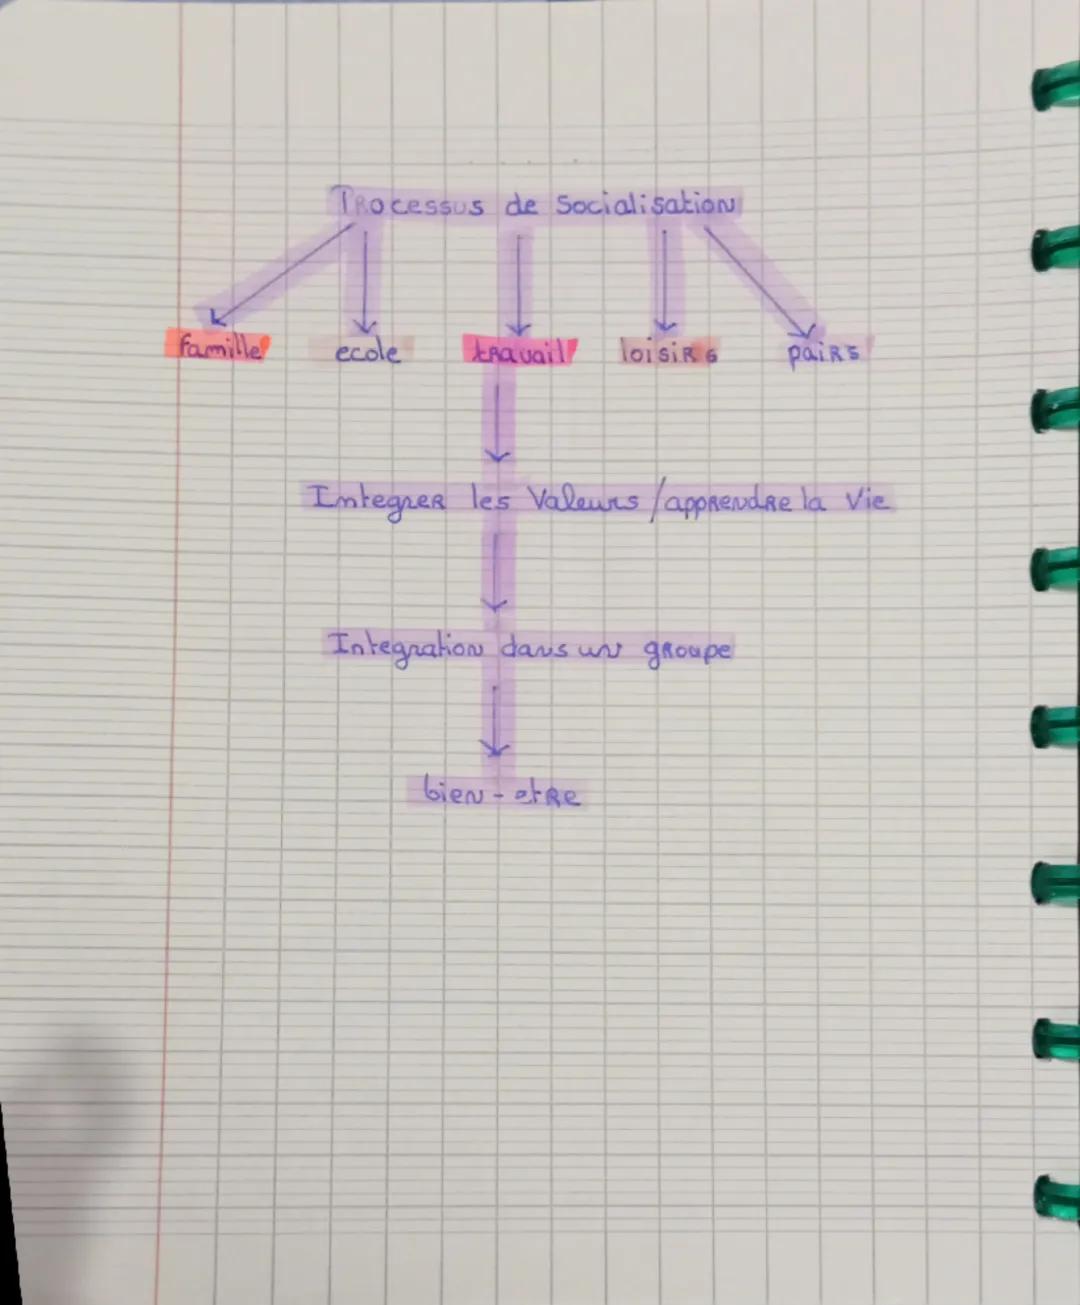 Processus de Socialisation
famille ecole travail loisirs pairs
Integrer les Valeurs / apprendre la Vie
Integration dans un groupe
bien-etre